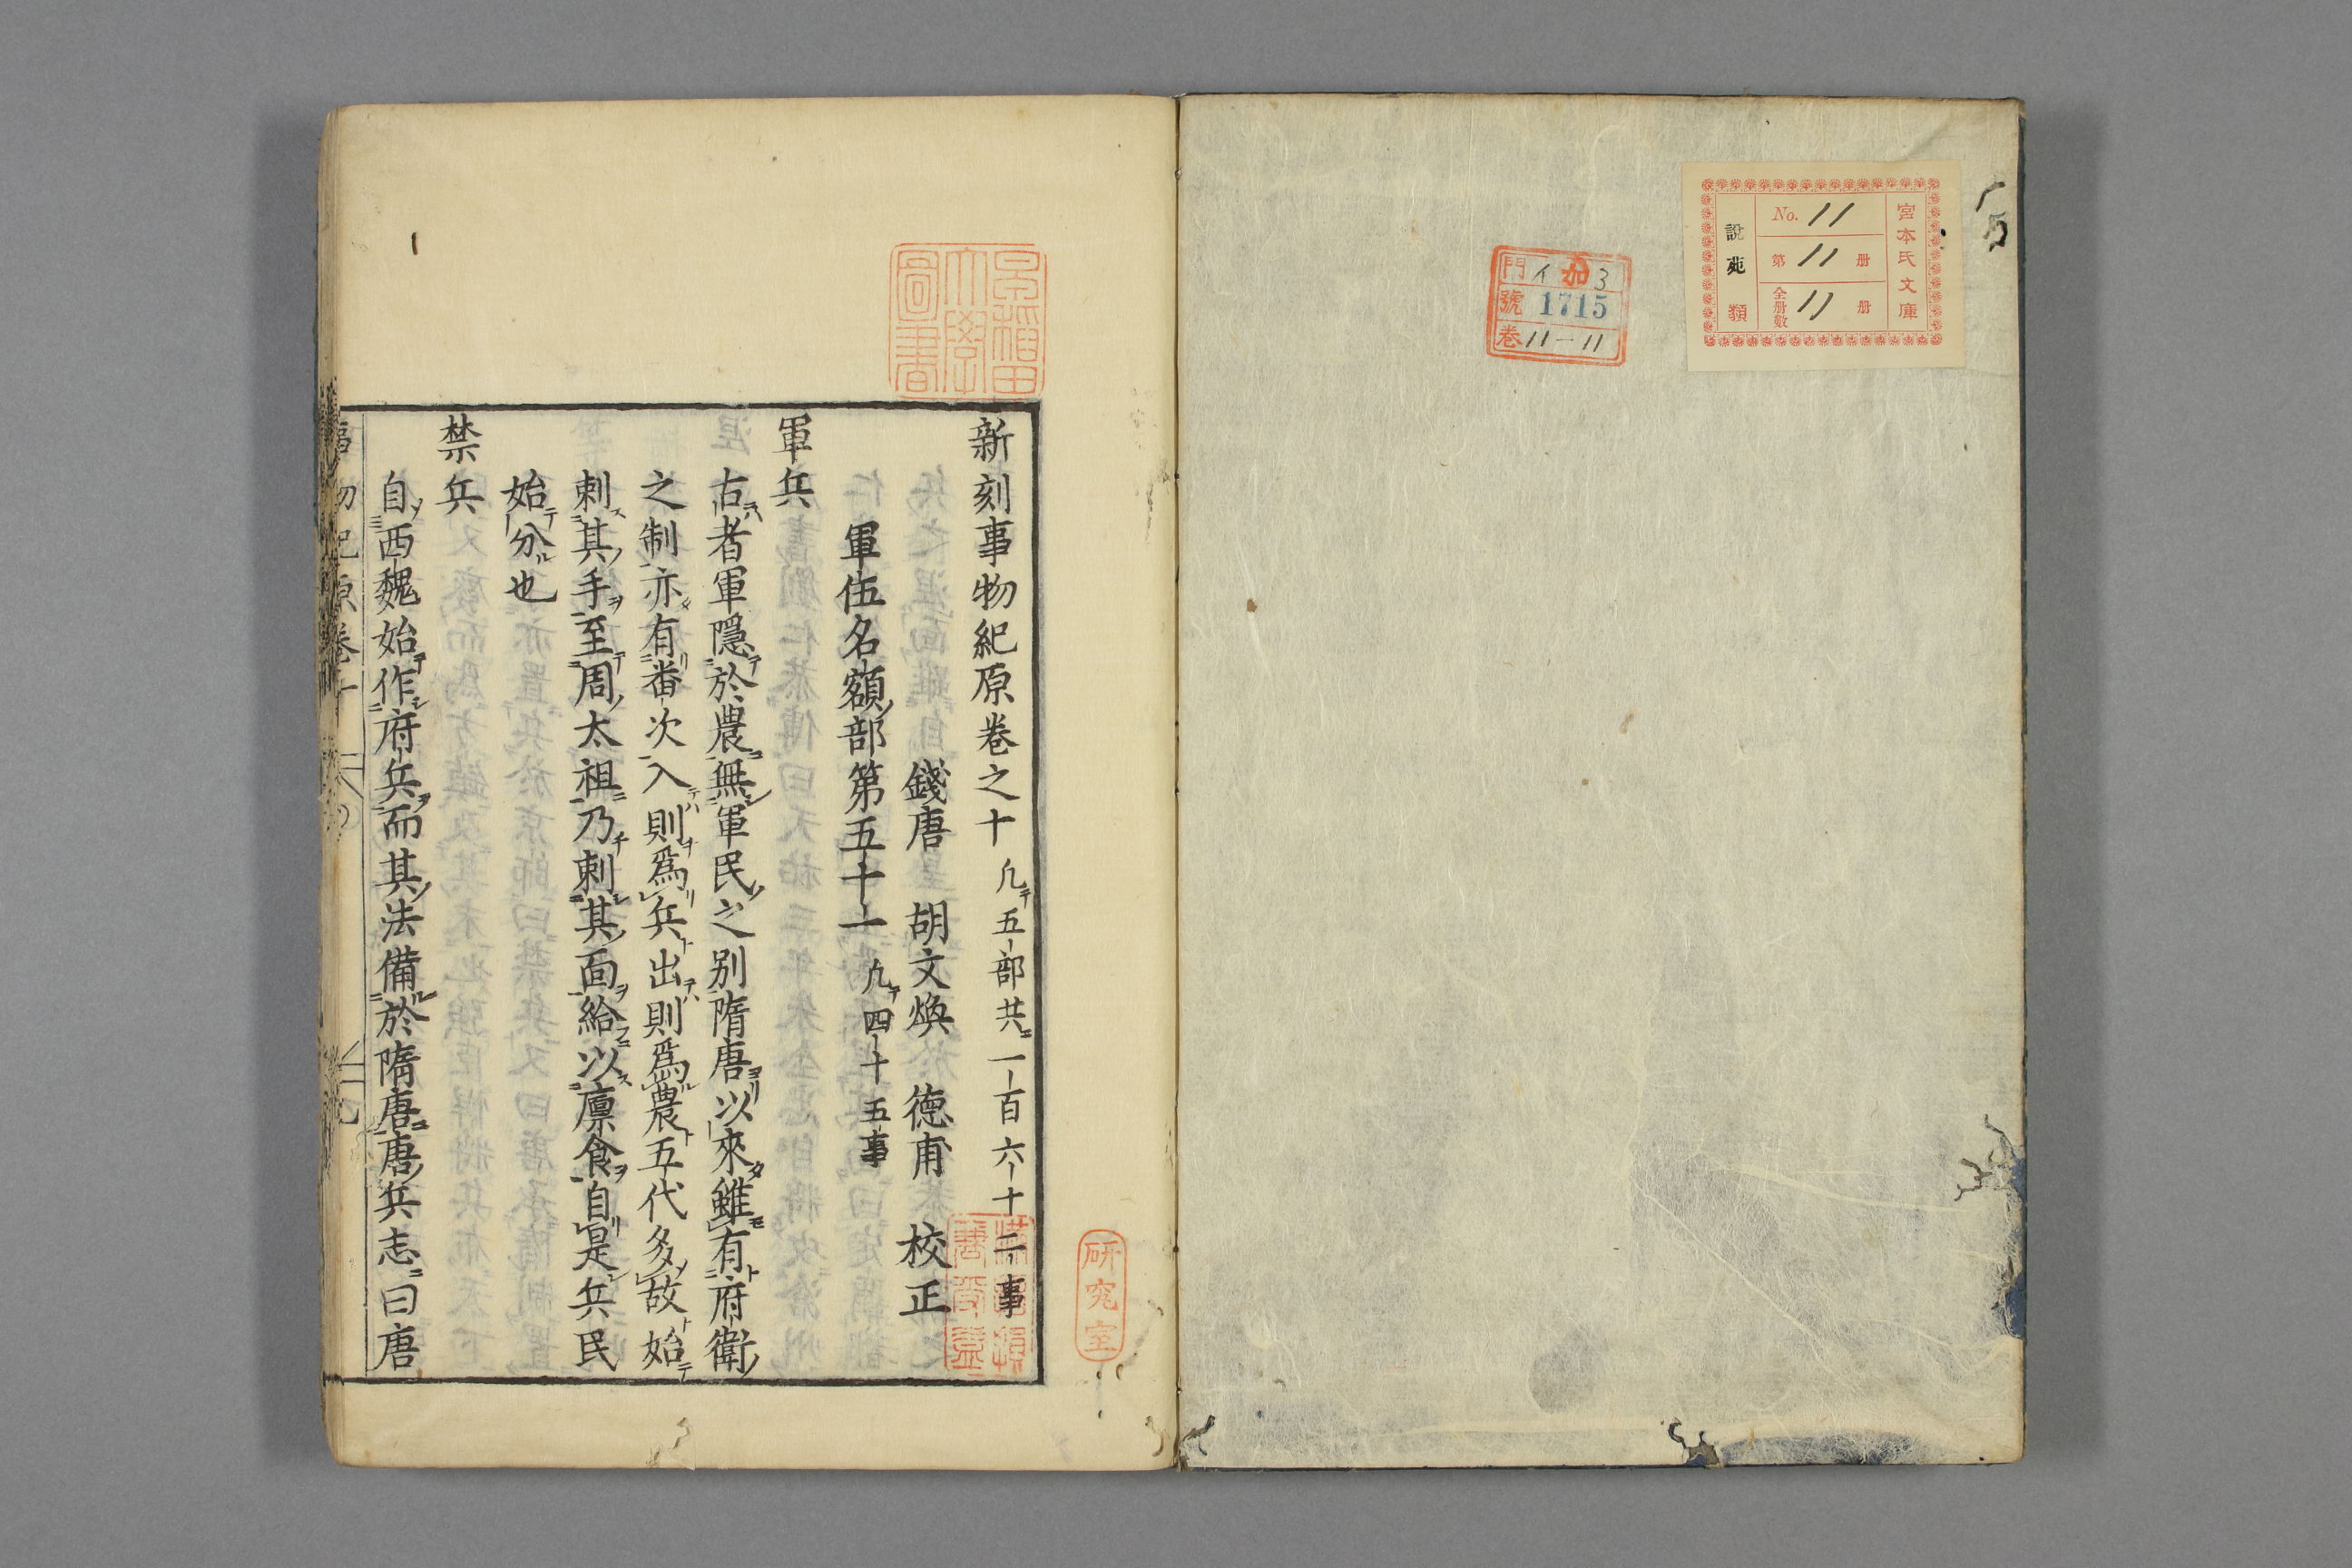 宮本氏文庫
No. 11
第 11 册
全册數 11 册
說苑類
門 イ 加 3
號 1715
卷 11-11
早稲田
大學
圖書
研究室
新刻事物紀原卷之十 凢五部共一百六十二事
錢唐 胡文煥 德甫 校正
軍伍名額部第五十一 凢四十五事
軍兵
古者軍隱於農無軍民之别隋唐以來雖有府衛
之制亦有番次入則爲兵出則爲農五代多故始
刺其手至周太祖乃刺其面給以廪食自是兵民
始分也
禁兵
自西魏始作府兵而其法備於隋唐唐兵志曰唐